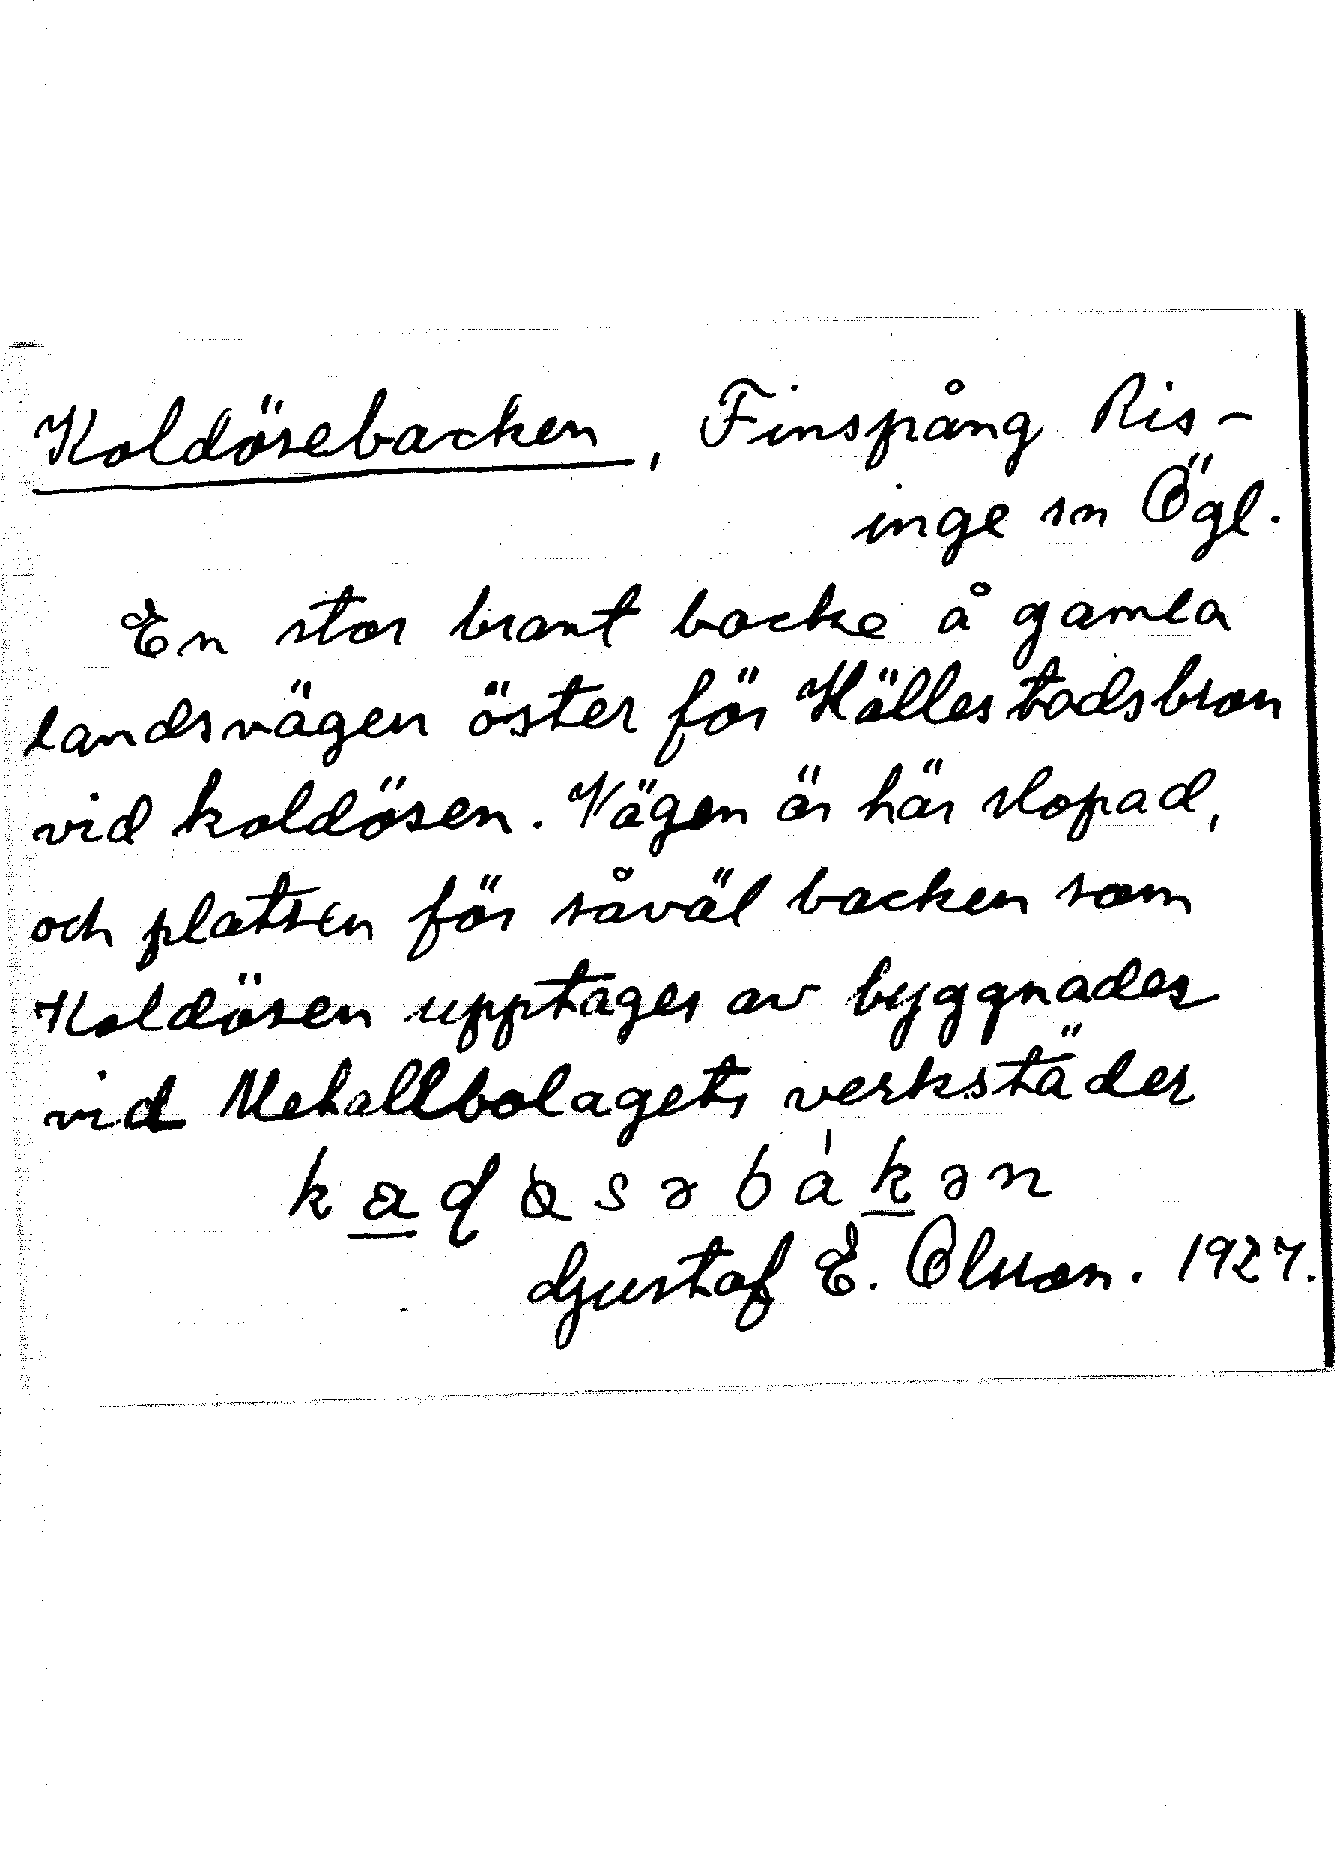 Koldösebacken, Finspång Ris-
inge sn Ögl.
En stor brant backe å gamla
landsvägen öster för Hällestadsbron
vid koldösen. Vägen är här slopad,
och platsen för såväl backen som
Koldösen upptages av byggnader
vid Metallbolagets verkstäder
Gustaf E. Olsson. 1927.